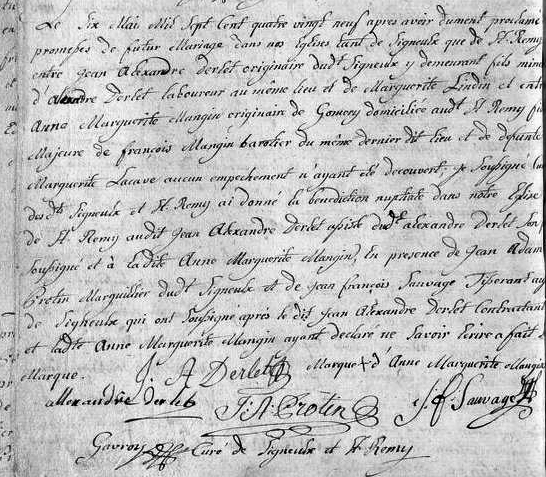 Le Six Mai Mil Sept Cent quatre vingt neuf apres avoir dument proclamé
promesses de futur Mariage dans nos Eglises tant de Signeulx que de St Remy
entre Jean Alexandre Derlet originaire dudt Signeux y demeurant fils mine
d'alexandre Derlet laboureur au même lieu et de Marguerite Lindin et entre
Anne Marguerite Mangin originaire de Gomery domiciliée audt St Remy fi
Majeure de françois Mangin du même dernier dit lieu et de defunte
Marguerite Lacave aucun empechement n'ayant été decouvert, je Soussigné
des dts Signeulx et St Remy ai donné la benediction nuptiale dans notre Eglise
de St Remy audit Jean Alexandre Derlet assisté dudt alexandre Derlet Son
Soussigné et à ladite Anne Marguerite Mangin, En presence de Jean Adam
Crotin Marguillier dudt Signeulx et de Jean françois Sauvage Tisserant
de Signeulx qui ont Soussigné après le dit Jean Alexandre Derlet Contractant
et ladte Anne Marguerite Mangin ayant declaré ne Savoir Ecrire a fait
Marque. J. A Derlet Marque + d'Anne Marguerite Mangin
allexandre derlet J. A Crotin J. f. Sauvage
Gavroy Curé de Signeulx et St Remy